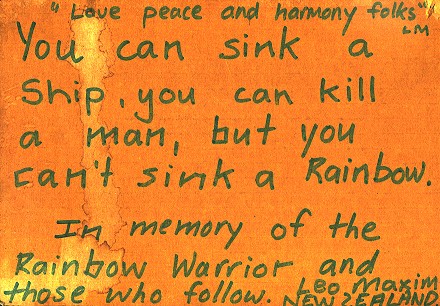 "Love peace and harmony folks"
LM
You can sink a
Ship, you can kill
a man, but you
can't sink a Rainbow.
In memory of the
Rainbow Warrior and
those who follow. Leo Maxim
NEW ZEALAND